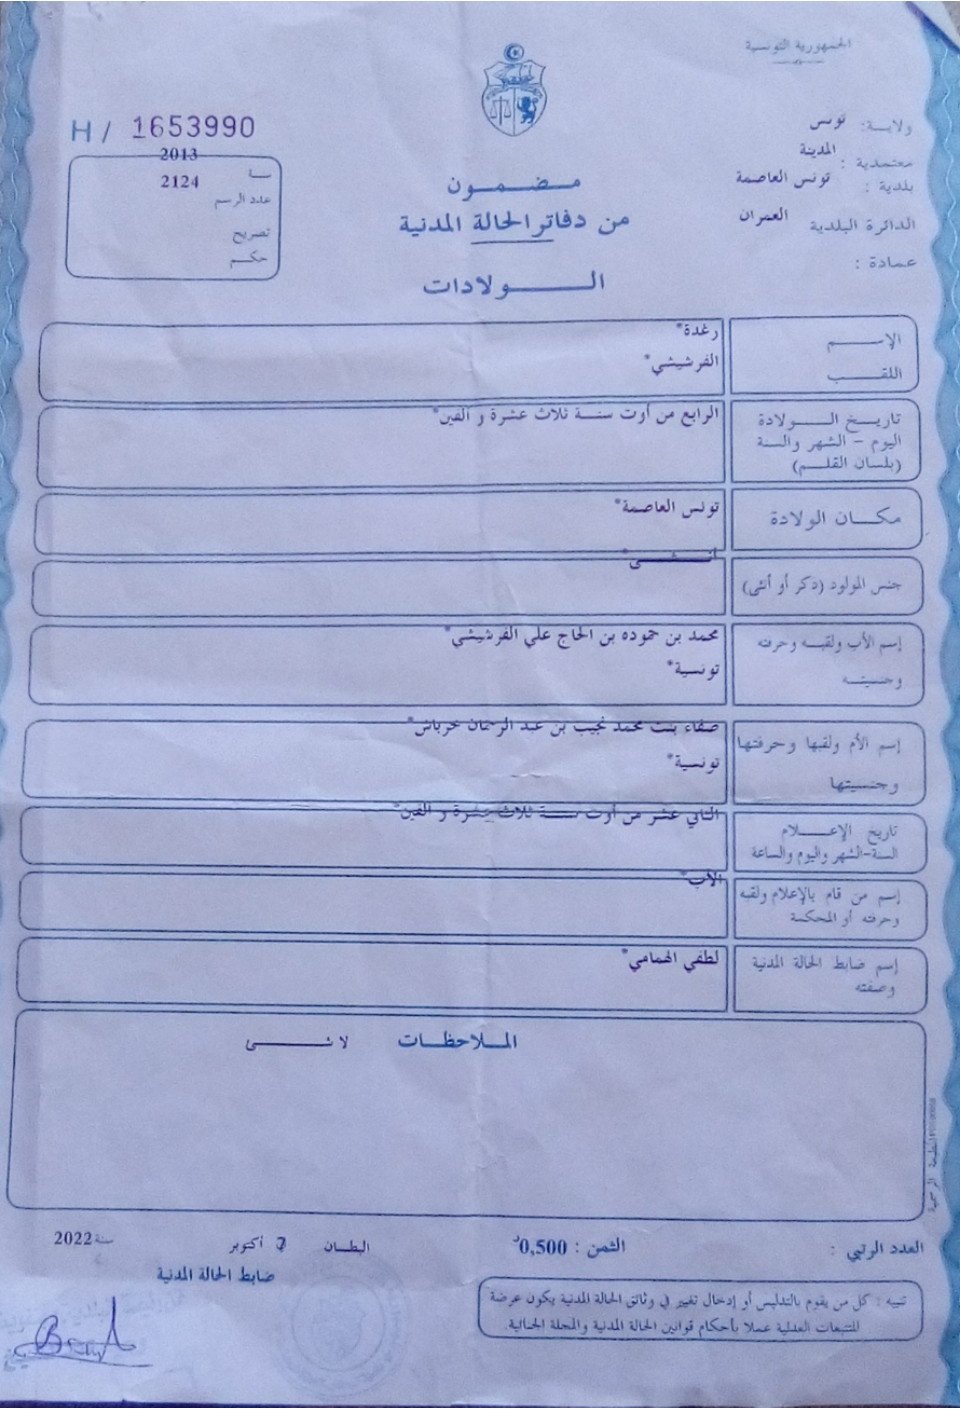 الجمهورية التونسية
ولاية: تونس
معتمدية : المدينة
بلدية : تونس العاصمة
الدائرة البلدية العمران
عمادة :
H / 1653990
2013
سنة
2124
عدد الرسم
تصريح
حكم
مضمون
من دفاتر الحالة المدنية
الولادات
الإسم
رغدة*
اللقب
الفرشيشي*
تاريخ الولادة
اليوم - الشهر والسنة
(بلسان القلم)
الرابع من أوت سنة ثلاث عشرة و ألفين*
مكان الولادة
تونس العاصمة*
جنس المولود (ذكر أو أنثى)
أنثى*
إسم الأب ولقبه وحرفته
وجنسيته
محمد بن حموده بن الحاج علي الفرشيشي*
تونسية*
إسم الأم ولقبها وحرفتها
وجنسيتها
صفاء بنت محمد نجيب بن عبد الرحمان خرباش*
تونسية*
تاريخ الإعلام
السنة-الشهر واليوم والساعة
الثاني عشر من أوت سنة ثلاث عشرة و ألفين*
إسم من قام بالإعلام ولقبه
وحرفته أو المحكمة
الأب*
إسم ضابط الحالة المدنية
وصفته
لطفي الهمامي*
الملاحظات لا شىء
المطبعة الرسمية
العدد الرتبي :
الثمن : 0,500د
البطان 7 أكتوبر سنة 2022
ضابط الحالة المدنية
تنبيه : كل من يقوم بالتدليس أو إدخال تغيير في وثائق الحالة المدنية يكون عرضة
للتتبعات العدلية عملا بأحكام قوانين الحالة المدنية والمجلة الجنائية.